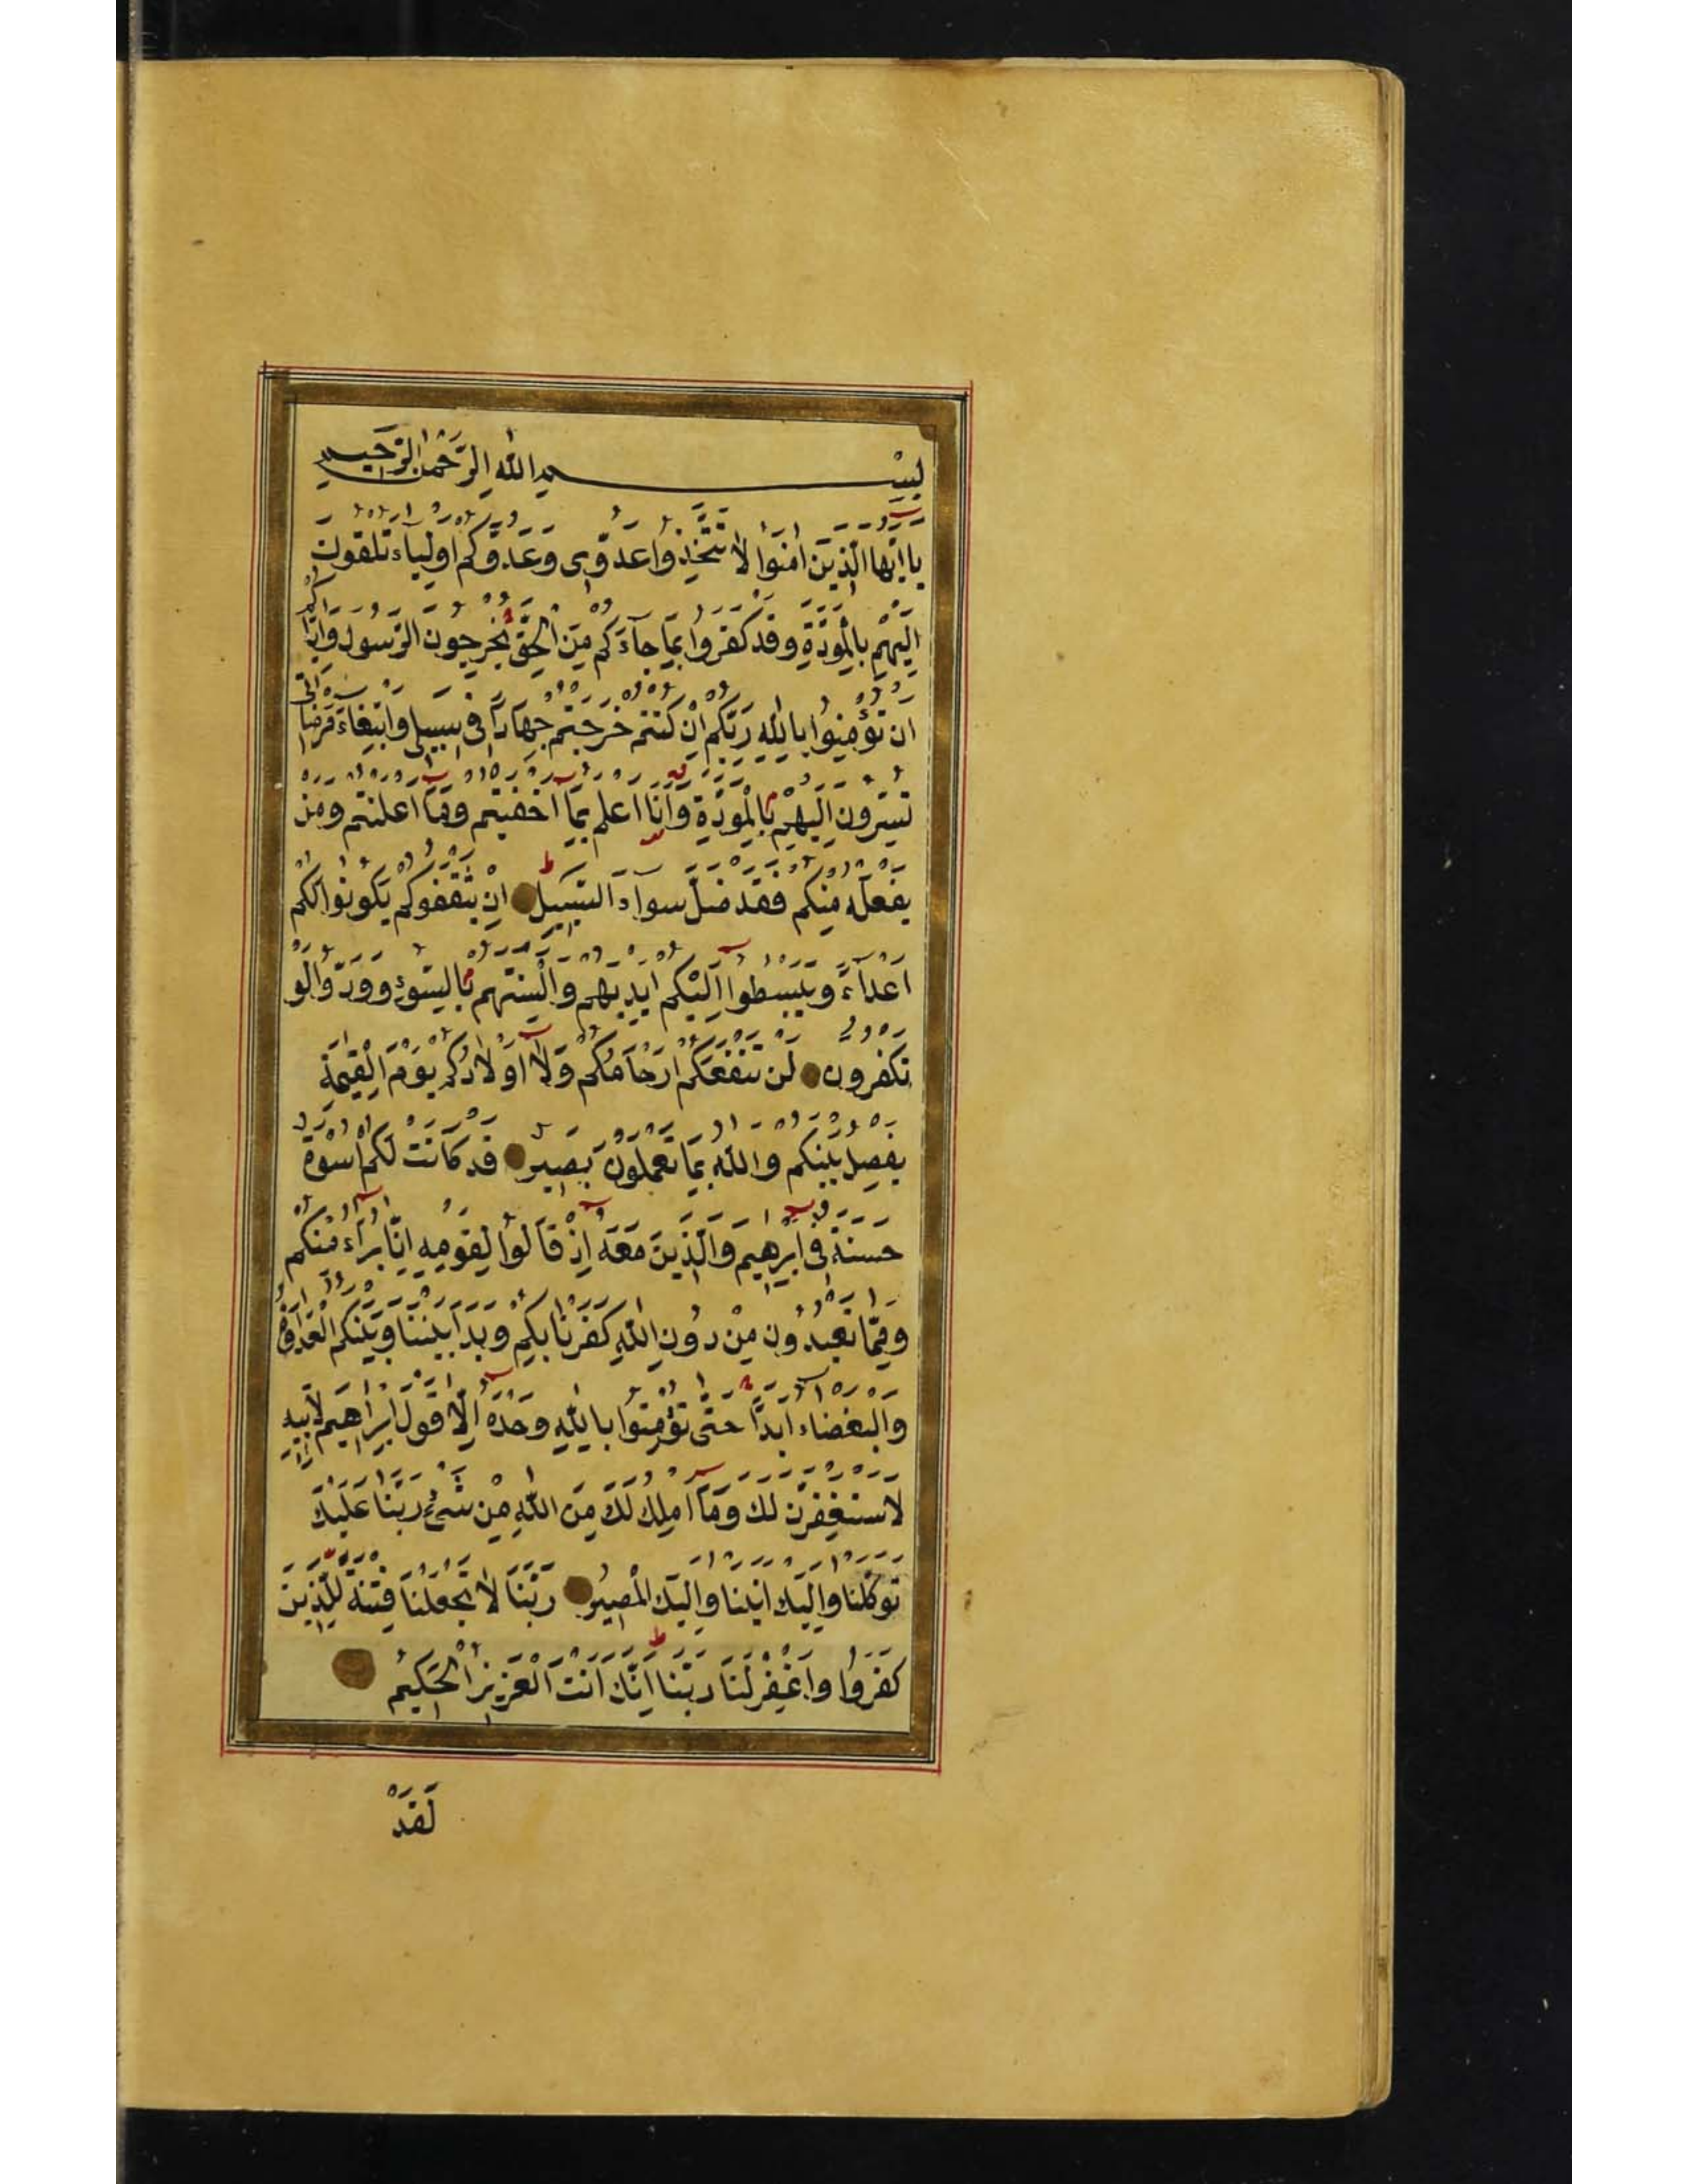 بِسْمِ اللهِ الرَّحْمٰنِ الرَّحِيمِ
يَا اَيُّهَا الَّذِينَ اٰمَنُوا لَا تَتَّخِذُوا عَدُوِّى وَعَدُوَّكُمْ اَوْلِيَاءَ تُلْقُونَ
اِلَيْهِمْ بِالْمَوَدَّةِ وَقَدْ كَفَرُوا بِمَا جَآءَكُمْ مِنَ الْحَقِّ يُخْرِجُونَ الرَّسُولَ وَاِيَّاكُمْ
اَنْ تُؤْمِنُوا بِاللهِ رَبِّكُمْ اِنْ كُنْتُمْ خَرَجْتُمْ جِهَادًا فِى سَبِيلِى وَابْتِغَآءَ مَرْضَاتِى
تُسِرُّونَ اِلَيْهِمْ بِالْمَوَدَّةِ وَاَنَا اَعْلَمُ بِمَآ اَخْفَيْتُمْ وَمَآ اَعْلَنْتُمْ وَمَنْ
يَفْعَلْهُ مِنْكُمْ فَقَدْ ضَلَّ سَوَآءَ السَّبِيلِ اِنْ يَثْقَفُوكُمْ يَكُونُوا لَكُمْ
اَعْدَآءً وَيَبْسُطُوٓا اِلَيْكُمْ اَيْدِيَهُمْ وَاَلْسِنَتَهُمْ بِالسُّوٓءِ وَوَدُّوا لَوْ
تَكْفُرُونَ لَنْ تَنْفَعَكُمْ اَرْحَامُكُمْ وَلَآ اَوْلَادُكُمْ يَوْمَ الْقِيٰمَةِ
يَفْصِلُ بَيْنَكُمْ وَاللهُ بِمَا تَعْمَلُونَ بَصِيرٌ قَدْ كَانَتْ لَكُمْ اُسْوَةٌ
حَسَنَةٌ فِىٓ اِبْرٰهِيمَ وَالَّذِينَ مَعَهُٓ اِذْ قَالُوا لِقَوْمِهِمْ اِنَّا بُرَءٰٓؤُا مِنْكُمْ
وَمِمَّا تَعْبُدُونَ مِنْ دُونِ اللهِ كَفَرْنَا بِكُمْ وَبَدَا بَيْنَنَا وَبَيْنَكُمُ الْعَدَاوَةُ
وَالْبَغْضَآءُ اَبَدًا حَتّٰى تُؤْمِنُوا بِاللهِ وَحْدَهُٓ اِلَّا قَوْلَ اِبْرَاهِيمَ لِاَبِيهِ
لَاَسْتَغْفِرَنَّ لَكَ وَمَآ اَمْلِكُ لَكَ مِنَ اللهِ مِنْ شَىْءٍ رَبَّنَا عَلَيْكَ
تَوَكَّلْنَا وَاِلَيْكَ اَنَبْنَا وَاِلَيْكَ الْمَصِيرُ رَبَّنَا لَا تَجْعَلْنَا فِتْنَةً لِلَّذِينَ
كَفَرُوا وَاغْفِرْ لَنَا رَبَّنَا اِنَّكَ اَنْتَ الْعَزِيزُ الْحَكِيمُ
لَقَدْ